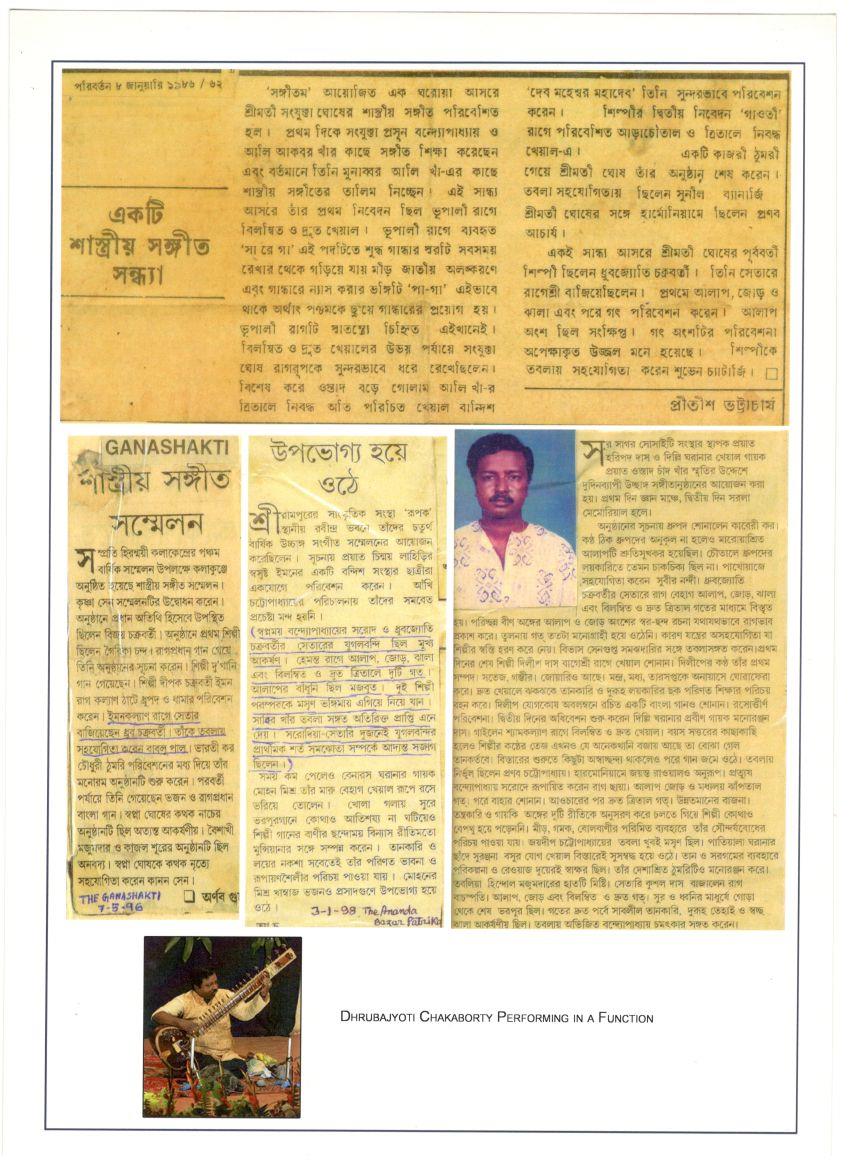 পরিবর্তন ৮ জানুয়ারি ১৯৮৬ / ৬২
একটি
শাস্ত্রীয় সঙ্গীত
সন্ধ্যা
'সঙ্গীতম' আয়োজিত এক ঘরোয়া আসরে
শ্রীমতী সংযুক্তা ঘোষের শাস্ত্রীয় সঙ্গীত পরিবেশিত
হল। প্রথম দিকে সংযুক্তা প্রসূন বন্দ্যোপাধ্যায় ও
আলি আকবর খাঁর কাছে সঙ্গীত শিক্ষা করেছেন
এবং বর্তমানে তিনি মুনাব্বর আলি খাঁ-এর কাছে
শাস্ত্রীয় সঙ্গীতের তালিম নিচ্ছেন। এই সান্ধ্য
আসরে তাঁর প্রথম নিবেদন ছিল ভূপালী রাগে
বিলম্বিত ও দ্রুত খেয়াল। ভূপালী রাগে ব্যবহৃত
'সা রে গা' এই পদটিতে শুদ্ধ গান্ধার স্বরটি সবসময়
রেখার থেকে গড়িয়ে যায় মীড় জাতীয় অলঙ্করণে
এবং গান্ধারে ন্যাস করার ভঙ্গিটি 'পা-গা' এইভাবে
থাকে অর্থাৎ পঞ্চমকে ছুঁয়ে গান্ধারের প্রয়োগ হয়।
ভূপালী রাগটি স্বাতন্ত্র্যে চিহ্নিত এইখানেই।
বিলম্বিত ও দ্রুত খেয়ালের উভয় পর্যায়ে সংযুক্তা
ঘোষ রাগরূপকে সুন্দরভাবে ধরে রেখেছিলেন।
বিশেষ করে ওস্তাদ বড়ে গোলাম আলি খাঁ-র
ত্রিতালে নিবদ্ধ অতি পরিচিত খেয়াল বান্দিশ
'দেব মহেশ্বর মহাদেব' তিনি সুন্দরভাবে পরিবেশন
করেন। শিল্পীর দ্বিতীয় নিবেদন 'গাওতী'
রাগে পরিবেশিত আড়াচৌতাল ও ত্রিতালে নিবদ্ধ
খেয়াল-এ। একটি কাজরী ঠুমরী
গেয়ে শ্রীমতী ঘোষ তাঁর অনুষ্ঠান শেষ করেন।
তবলা সহযোগিতায় ছিলেন সুনীল ব্যানার্জি
শ্রীমতী ঘোষের সঙ্গে হার্মোনিয়ামে ছিলেন প্রণব
আচার্য।
একই সান্ধ্য আসরে শ্রীমতী ঘোষের পূর্ববর্তী
শিল্পী ছিলেন ধ্রুবজ্যোতি চক্রবর্তী। তিনি সেতারে
রাগেশ্রী বাজিয়েছিলেন। প্রথমে আলাপ, জোড় ও
ঝালা এবং পরে গৎ পরিবেশন করেন। আলাপ
অংশ ছিল সংক্ষিপ্ত। গৎ অংশটির পরিবেশনা
অপেক্ষাকৃত উজ্জ্বল মনে হয়েছে। শিল্পীকে
তবলায় সহযোগিতা করেন শুভেন চ্যাটার্জি। □
প্রীতীশ ভট্টাচার্য
GANASHAKTI
শাস্ত্রীয় সঙ্গীত
সম্মেলন
সম্প্রতি হিরণ্ময়ী কলাকেন্দ্রের পঞ্চম
বার্ষিক সম্মেলন উপলক্ষে কলাকুঞ্জে
অনুষ্ঠিত হয়েছে শাস্ত্রীয় সঙ্গীত সম্মেলন।
কৃষ্ণা সেন সম্মেলনটির উদ্বোধন করেন।
অনুষ্ঠানে প্রধান অতিথি হিসেবে উপস্থিত
ছিলেন বিজয় চক্রবর্তী। অনুষ্ঠানে প্রথম শিল্পী
ছিলেন গৈরিকা চন্দ। রাগপ্রধান গান গেয়ে
তিনি অনুষ্ঠানের সূচনা করেন। শিল্পী দু'খানি
গান গেয়েছেন। শিল্পী দীপক চক্রবর্তী ইমন
রাগ কল্যাণ ঠাটে ধ্রুপদ ও ধামার পরিবেশন
করেন। ইমনকল্যাণ রাগে সেতার
বাজিয়েছেন ধ্রুব চক্রবর্তী। তাঁকে তবলায়
সহযোগিতা করেন বাবলু পাল। ভারতী কর
চৌধুরী ঠুমরি পরিবেশনের মধ্য দিয়ে তাঁর
মনোরম অনুষ্ঠানটি শুরু করেন। পরবর্তী
পর্যায়ে তিনি গেয়েছেন ভজন ও রাগপ্রধান
বাংলা গান। স্বপ্না ঘোষের কথক নাচের
অনুষ্ঠানটি ছিল অত্যন্ত আকর্ষণীয়। বৈশাখী
মজুমদার ও কাজল শূরের অনুষ্ঠানটি ছিল
অনবদ্য। স্বপ্না ঘোষকে কথক নৃত্যে
সহযোগিতা করেন কানন সেন।
THE GANASHAKTI □ অর্ণব
7-5-96
উপভোগ্য হয়ে
ওঠে
শ্রীরামপুরের সাংস্কৃতিক সংস্থা 'রূপক'
স্থানীয় রবীন্দ্র ভবনে তাঁদের চতুর্থ
বার্ষিক উচ্চাঙ্গ সংগীত সম্মেলনের আয়োজন
করেছিলেন। সূচনায় প্রয়াত চিন্ময় লাহিড়ির
স্বসৃষ্ট ইমনের একটি বন্দিশ সংস্থার ছাত্রীরা
একযোগে পরিবেশন করেন। আঁখি
চট্টোপাধ্যায়ের পরিচালনায় তাঁদের সমবেত
প্রচেষ্টা মন্দ হয়নি।
(স্বপ্নময় বন্দ্যোপাধ্যায়ের সরোদ ও ধ্রুবজ্যোতি
চক্রবর্তীর সেতারের যুগলবন্দি ছিল মুখ্য
আকর্ষণ। হেমন্ত রাগে আলাপ, জোড়, ঝালা
এবং বিলম্বিত ও দ্রুত ত্রিতালে দুটি গত্।
আলাপের বাঁধুনি ছিল মজবুত। দুই শিল্পী
পরস্পরকে মসৃণ ভঙ্গিমায় এগিয়ে নিয়ে যান।
সাব্বির খাঁর তবলা সঙ্গত অতিরিক্ত প্রাপ্তি এনে
দেয়। সরোদিয়া-সেতারি দুজনেই যুগলবন্দির
প্রাথমিক শর্ত সমঝোতা সম্পর্কে আদ্যন্ত সজাগ
ছিলেন।)
সময় কম পেলেও বেনারস ঘরানার গায়ক
মোহন মিশ্র তাঁর মারু বেহাগ খেয়াল রূপে রসে
ভরিয়ে তোলেন। খোলা গলায় সুরে
ভরপুরগানে কোথাও আতিশয্য না ঘটিয়েও
শিল্পী গানের বাণীর ছন্দোময় বিন্যাস রীতিমতো
মুন্সিয়ানার সঙ্গে সম্পন্ন করেন। তানকারি ও
লয়ের নকশা সবেতেই তাঁর পরিণত ভাবনা ও
রূপায়ণশৈলীর পরিচয় পাওয়া যায়। মোহনের
মিশ্র খাম্বাজ ভজনও প্রসাদগুণে উপভোগ্য হয়ে
ওঠে।
3-1-98 The Ananda
Bazar Patrika
সুর সাগর সোসাইটি সংস্থার স্থাপক প্রয়াত
হরিপদ দাস ও দিল্লি ঘরানার খেয়াল গায়ক
প্রয়াত ওস্তাদ চাঁদ খাঁর স্মৃতির উদ্দেশে
দুদিনব্যাপী উচ্চাঙ্গ সঙ্গীতানুষ্ঠানের আয়োজন করা
হয়। প্রথম দিন জ্ঞান মঞ্চে, দ্বিতীয় দিন সরলা
মেমোরিয়াল হলে।
অনুষ্ঠানের সূচনায় ধ্রুপদ শোনালেন কাবেরী কর।
কণ্ঠ ঠিক ধ্রুপদের অনুকূল না হলেও মারোয়াশ্রিত
আলাপটি শ্রুতিসুখকর হয়েছিল। চৌতালে ধ্রুপদের
লয়কারিতে তেমন চাকচিক্য ছিল না। পাখোয়াজে
সহযোগিতা করেন সুবীর নন্দী। ধ্রুবজ্যোতি
চক্রবর্তীর সেতারে রাগ বেহাগ আলাপ, জোড়, ঝালা
এবং বিলম্বিত ও দ্রুত ত্রিতাল গতের মাধ্যমে বিস্তৃত
হয়। পরিচ্ছন্ন বীণ অঙ্গের আলাপ ও জোড় অংশের স্বর-ছন্দ রচনা যথাযথভাবে রাগভাব
প্রকাশ করে। তুলনায় গত্ ততটা মনোগ্রাহী হয়ে ওঠেনি। কারণ যন্ত্রের অসহযোগিতা যা
শিল্পীর স্বস্তি হরণ করে নেয়। বিভাস সেনগুপ্ত সমঝদারির সঙ্গে তবলাসঙ্গত করেন।প্রথম
দিনের শেষ শিল্পী দিলীপ দাস যাগেশ্রী রাগে খেয়াল শোনান। দিলীপের কণ্ঠ তাঁর প্রথম
সম্পদ। সতেজ, গম্ভীর। জোয়ারিও আছে। মন্দ্র, মধ্য, তারসপ্তকে অনায়াসে ঘোরাফেরা
করে। দ্রুত খেয়ালে ঝকঝকে তানকারি ও দুরূহ লয়কারির ছক পরিণত শিক্ষার পরিচয়
বহন করে। দিলীপ যোগকোষ অবলম্বনে রচিত একটি বাংলা গানও শোনান। রসোত্তীর্ণ
পরিবেশনা। দ্বিতীয় দিনের অধিবেশন শুরু করেন দিল্লি ঘরানার প্রবীণ গায়ক মনোরঞ্জন
দাস। গাইলেন শ্যামকল্যাণ রাগে বিলম্বিত ও দ্রুত খেয়াল। বয়স সত্তরের কাছাকাছি
হলেও শিল্পীর কণ্ঠের তেজ এখনও যে অনেকখানি বজায় আছে তা বোঝা গেল
তানকর্তবে। বিস্তারের শুরুতে কিছুটা অস্বাচ্ছন্দ্য থাকলেও পরে গান জমে ওঠে। তবলায়
নির্ভুল ছিলেন প্রণব চট্টোপাধ্যায়। হারমোনিয়ামে জয়ন্ত রাওয়ালও অনুরূপ। প্রত্যুষ
বন্দ্যোপাধ্যায় সরোদে রূপায়িত করেন রাগ ছায়া। আলাপ জোড় ও মধ্যলয় ঝাঁপতাল
গত্ পরে বাহার শোনান। আওচারের পর দ্রুত ত্রিতাল গত্। উন্নতমানের বাজনা।
তন্ত্রকারি ও গায়কি অঙ্গের দুটি রীতিকে অনুসরণ করে চলতে গিয়ে শিল্পী কোথাও
বেপথু হয়ে পড়েননি। মীড়, গমক, বোলবাণীর পরিমিত ব্যবহারে তাঁর সৌন্দর্যবোধের
পরিচয় পাওয়া যায়। জয়দীপ চট্টোপাধ্যায়ের তবলা খুবই মসৃণ ছিল। পাতিয়ালা ঘরানার
ছাঁদে সুরঞ্জনা বসুর যোগ খেয়াল বিস্তারেই সুসম্বদ্ধ হয়ে ওঠে। তান ও সরগমের ব্যবহারে
পরিকল্পনা ও রেওয়াজ দুয়েরই স্বাক্ষর ছিল। তাঁর দেশাশ্রিত ঠুমরিটিও মনোরঞ্জন করে।
তবলিয়া হিন্দোল মজুমদারের হাতটি মিষ্টি। সেতারি কুশল দাস বাজালেন রাগ
বাচস্পতি। আলাপ, জোড় এবং বিলম্বিত ও দ্রুত গত্। সুর ও ধ্বনির মাধুর্যে গোড়া
থেকে শেষ ভরপুর ছিল। গতের দ্রুত পর্বে সাবলীল তানকারি, দুরূহ তেহাই ও স্বচ্ছ
ঝালা আকর্ষণীয় ছিল। তবলায় অভিজিত বন্দ্যোপাধ্যায় চমৎকার সঙ্গত করেন।
DHRUBAJYOTI CHAKABORTY PERFORMING IN A FUNCTION